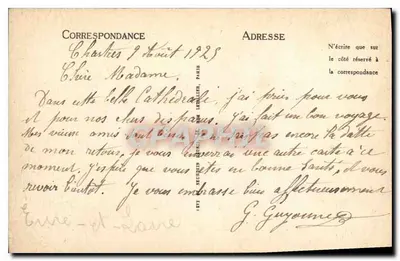 CORRESPONDANCE
ADRESSE
Chartres 9 Août 1925
N'écrire que sur
le côté réservé à
la correspondance
Chère Madame.
Dans cette belle Cathédrale, j'ai prié pour vous
et pour nos chers disparus. J'ai fait un bon voyage.
Mes vieux amis vont bien, je ne sais pas encore la date
de mon retour, je vous enverrai une autre carte à ce
moment. J'espère que vous êtes en bonne santé, et vous
revoir bientôt. Je vous embrasse bien affectueusement
G. Guyonnet
Eure-et-Loire